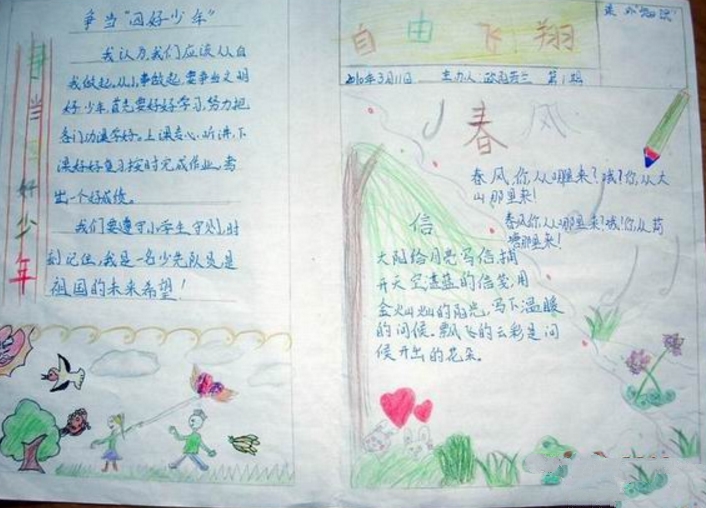 争当"四好少年"
争当四好少年
我认为，我们应该从自
我做起。从小事做起，要争当文明
好少年，首先要好好学习，努力把
各门功课学好。上课专心听讲，下
课好好复习，按时完成作业，考
出一个好成绩。
我们要遵守小学生守则，时
刻记住，我是一名少先队员，是
祖国的未来希望！
自由飞翔
课外知识
2010年3月11日 主办人：欧阳 第1期
春风
春风，你从哪里来？哦！你从大
山那里来！
春风你从哪里来？哦！你从荷
塘那里来！
信
太阳给月亮写信，摘
开天空湛蓝的信笺，用
金灿灿的阳光，写下温暖
的问候。飘飞的云彩是问
候开出的花朵。